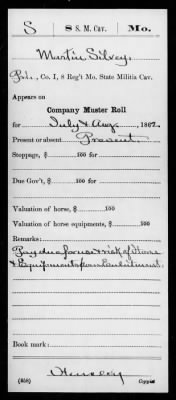 S 8 S. M. Cav. Mo.
Martin Silvey
Pvt., Co. I, 8 Reg't Mo. State Militia Cav.
Appears on
Company Muster Roll
for July & Aug, 1862.
Present or absent Present
Stoppage, $ 100 for
Due Gov't, $ 100 for
Valuation of horse, $ 100
Valuation of horse equipments, $ 100
Remarks:
Pay due for use & risk of Horse
& Equipments from Enrolment.
Book mark:
(858) Copyist.